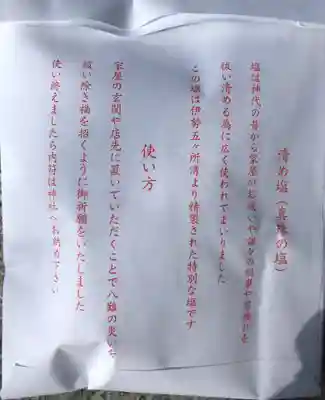 清め塩（真珠の塩）
塩は神代の昔から家屋のお祓いや諸々の罪事や穢れを
祓い清める為に広く使われてまいりました
この塩は伊勢五ヶ所湾より精製された特別な塩です
使い方
家屋の玄関や店先に置いていただくことで八難の災いを
祓い除き福を招くように御祈願をいたしました
使い終えましたら内符は神社へお納め下さい